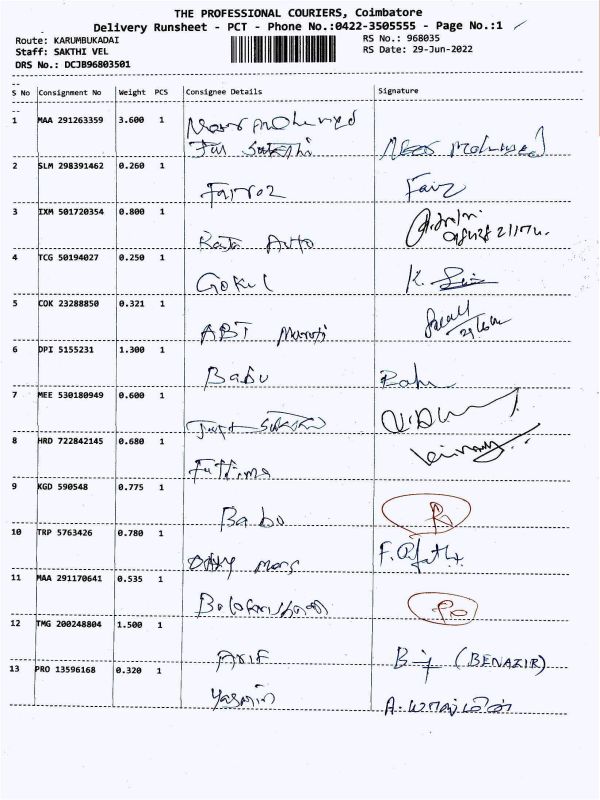 THE PROFESSIONAL COURIERS, Coimbatore
Delivery Runsheet - PCT - Phone No.:0422-3505555 - Page No.:1
Route: KARUMBUKADAI
RS No.: 968035
Staff: SAKTHI VEL
RS Date: 29-Jun-2022
DRS No.: DCJB96803501
S No Consignment No Weight PCS Consignee Details Signature
1 MAA 291263359 3.600 1
2 SLM 298391462 0.260 1
Fairoz Faiz
3 IXM 501720354 0.800 1
Raja Auto
4 TCG 50194027 0.250 1
Gokul K.
5 COK 23288850 0.321 1
ABT Maruti
6 DPI 5155231 1.300 1
Babu
7 MEE 530180949 0.600 1
8 HRD 722842145 0.680 1
9 KGD 590548 0.775 1
Babu
10 TRP 5763426 0.780 1
11 MAA 291170641 0.535 1
12 TMG 200248804 1.500 1
Arif (BENAZIR)
13 PRO 13596168 0.320 1
Yasmin